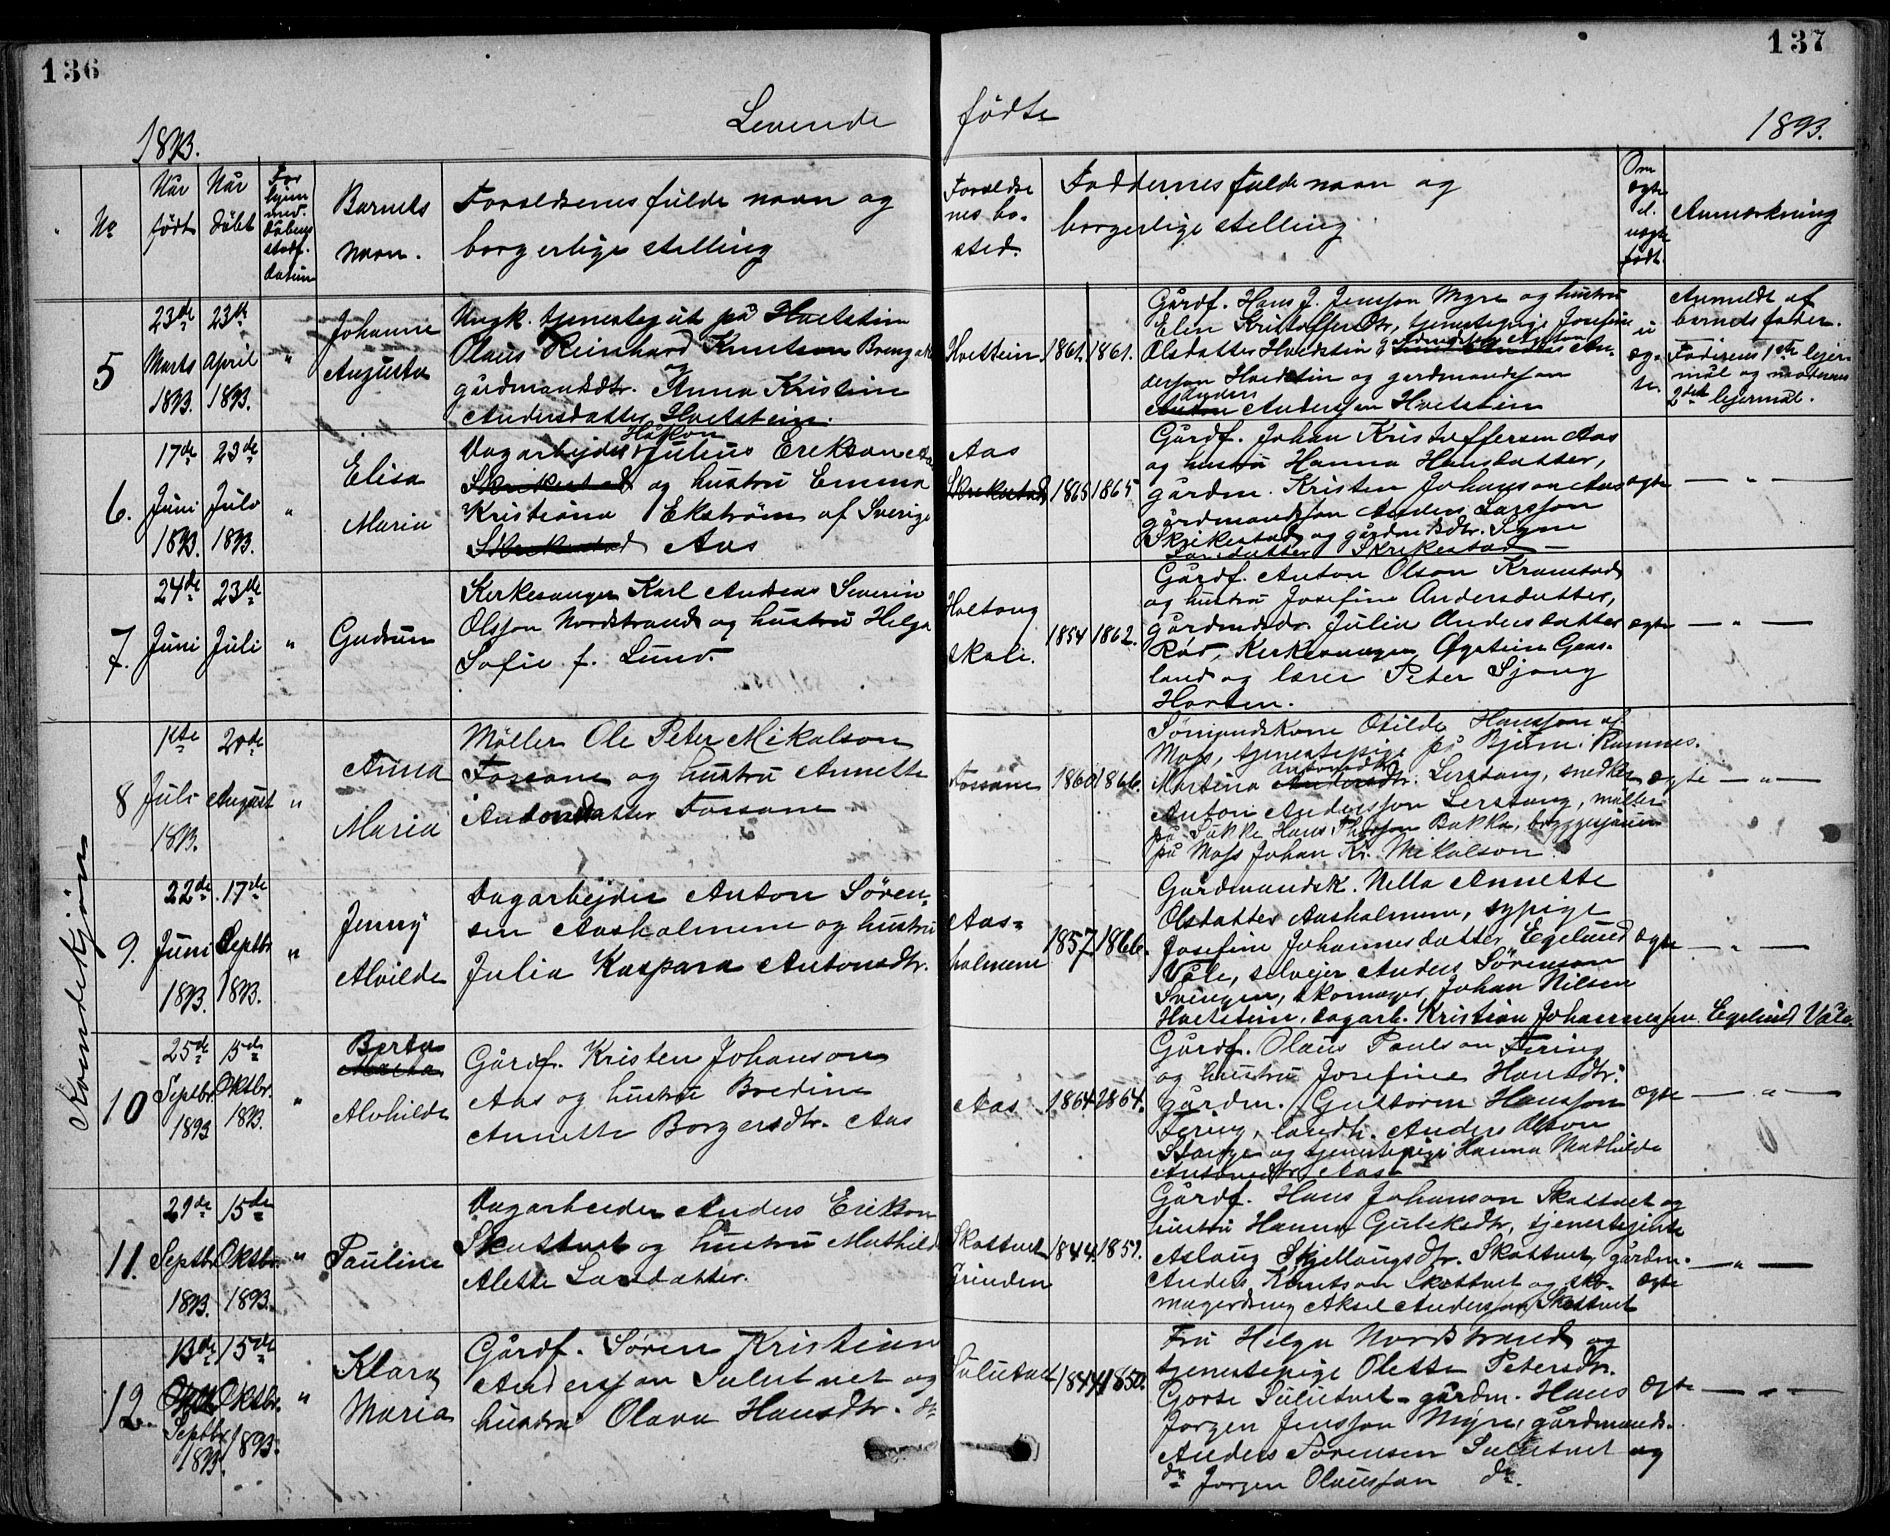 136
137
Levende fødte
1893.
1893.
No
Når født
Når døbt
For hjemmed. døbens stadf. datum
Barnets navn.
Forældrenes fulde navn og borgerlige stilling
Forældrenes bosted.
Faddernes fulde navn og borgerlige stilling
Om ægte el. uægte født.
Anmærkning
Kvindekjøn
5
23de Marts 1893.
23de April 1893.
"
Johanne Augusta
Ungk. tjenestegut på Hvetstein
Olaus Reinhard Knutson
gårdmandsdtr. og Anna Kristine
Andersdatter Hvetstein.
Hvetstein
1861.
1861.
Gårdf. Hans J. Jensson Myre og hustru
Elen Kristoffersdtr, tjenestepige Josefine
Olsdatter Hvidstein, gårdmandssøn Anton An-
dersson Hvidstein og gårdmandssøn
Anders Anderssen Hvetstein
uægte.
Anmeldt af
barnets fader.
Faderens 1ste leier-
mål og moderens
2det lejermål.
6.
17de Juni 1893.
23de Julo 1893.
"
Elisa Maria
Dagarbejder Håkon Julius Erikson Aas
og hustru Emma
Kristiana Ekstrøm af Sverige
Aas
Aas
1865
1865
Gårdf. Johan Kristoffersen Aas
og hustru Hanna Hansdatter,
gårdm. Kristen Johanson Aas
gårdmandssøn Anders Larsson
Skrikestad og gårdmdsdtr. Signe
Larsdatter Skrikestad
ægte
— " —
7.
24de Juni
23de Juli
"
Gudrun
Kirkesanger Karl Andreas Severin
Olsson Nordstrand og hustru Helga
Sofie f. Lund.
Holtong skole.
1854
1862.
Gårdf. Anton Olson Kramstad
og hustru Josefine Andersdatter,
gårdmdsdr. Julia Andersdatter
Rød, Kirkesanger Øystein Gaas-
land og lærer Peter Sjong
Horten.
ægte
— " —
8
1ste Juli 1893.
20de August
"
Anna Maria
Møller Ole Peter Mikalson
Fossane og hustru Annette
Andersdatter Fossane
Fossane
1860
1866.
Sømandskone Otilde Hansson af
Moss, tjenestepige på Bjørn i Ramnes.
Martina Antonsdtr. Lerstang, snedker
Anton Andersson Lerstang, møller
på Sukke Hans Thorsson Bakke, bryggesjauer
på Moss Johan Kr. Mikalson
ægte
— " —
9.
22de Juni 1893.
17de Septbr 1893.
"
Jenny Alvilde
Dagarbejder Anton Søren-
sen Aasholmene og hustru
Julia Kaspara Antonsdtr.
Aas-
holmene
1857
1866.
Gårdmandsk. Nella Annette
Olsdatter Aasholmene, sypige
Josefine Johannesdatter Egelund
Våle, selvejer Anders Sørenson
Svingen, skomager Johan Nilsen
Hvetstein, dagarb. Kristian Johannessen Egelund Våle.
ægte
— " —
10
25de Septbr. 1893
15de Oktbr. 1893.
"
Berta
Alvhilde
Gårdf. Kristen Johanson
Aas og hustru Bredine
Annette Borgersdtr. Aas
Aas
1864
2864.
Gårdf. Olaus Paulson Firing
og hustru Josefine Hansdtr.
gårdm. Guttorm Hansson
Firing, landh. Anders Olson
Stange og tjenestepige Hanna Mathilde
Antonsdtr Aas
ægte
— " —
11.
29de Septbr. 1893.
15de Oktbr. 1893.
"
Pauline
Dagarbeider Anders Erikson
Skattvet og hustru Mathilde
Alette Larsdatter.
Skattvet
Grinden
1844.
1851.
Gårdf. Hans Johanson Skattvet og
hustru Hanna Guleksdtr, tjenestejente
Aslaug Skjellaugsdtr. Skattvet, gårdm.
Anders Knutson Skattvet og sko-
magerdreng Aksel Andersson Skattvet
ægte
— " —
12.
13de Septbr 1893.
15de Oktbr. 1893.
"
Klara Maria
Gårdf. Søren Kristian
Anderssen Sulutvet og
hustru Olava Hansdtr. do
Sulutvet
1844
1850.
Fru Helga Nordstrand og
tjenestepige Olette Petersdtr.
Gorse Sulutvet - gårdm. Hans
Jorgen Jensson Myre, gårdmands.
Anders Sørensen Sulutvet og
do Jorgen Olausson do.
ægte
— " —